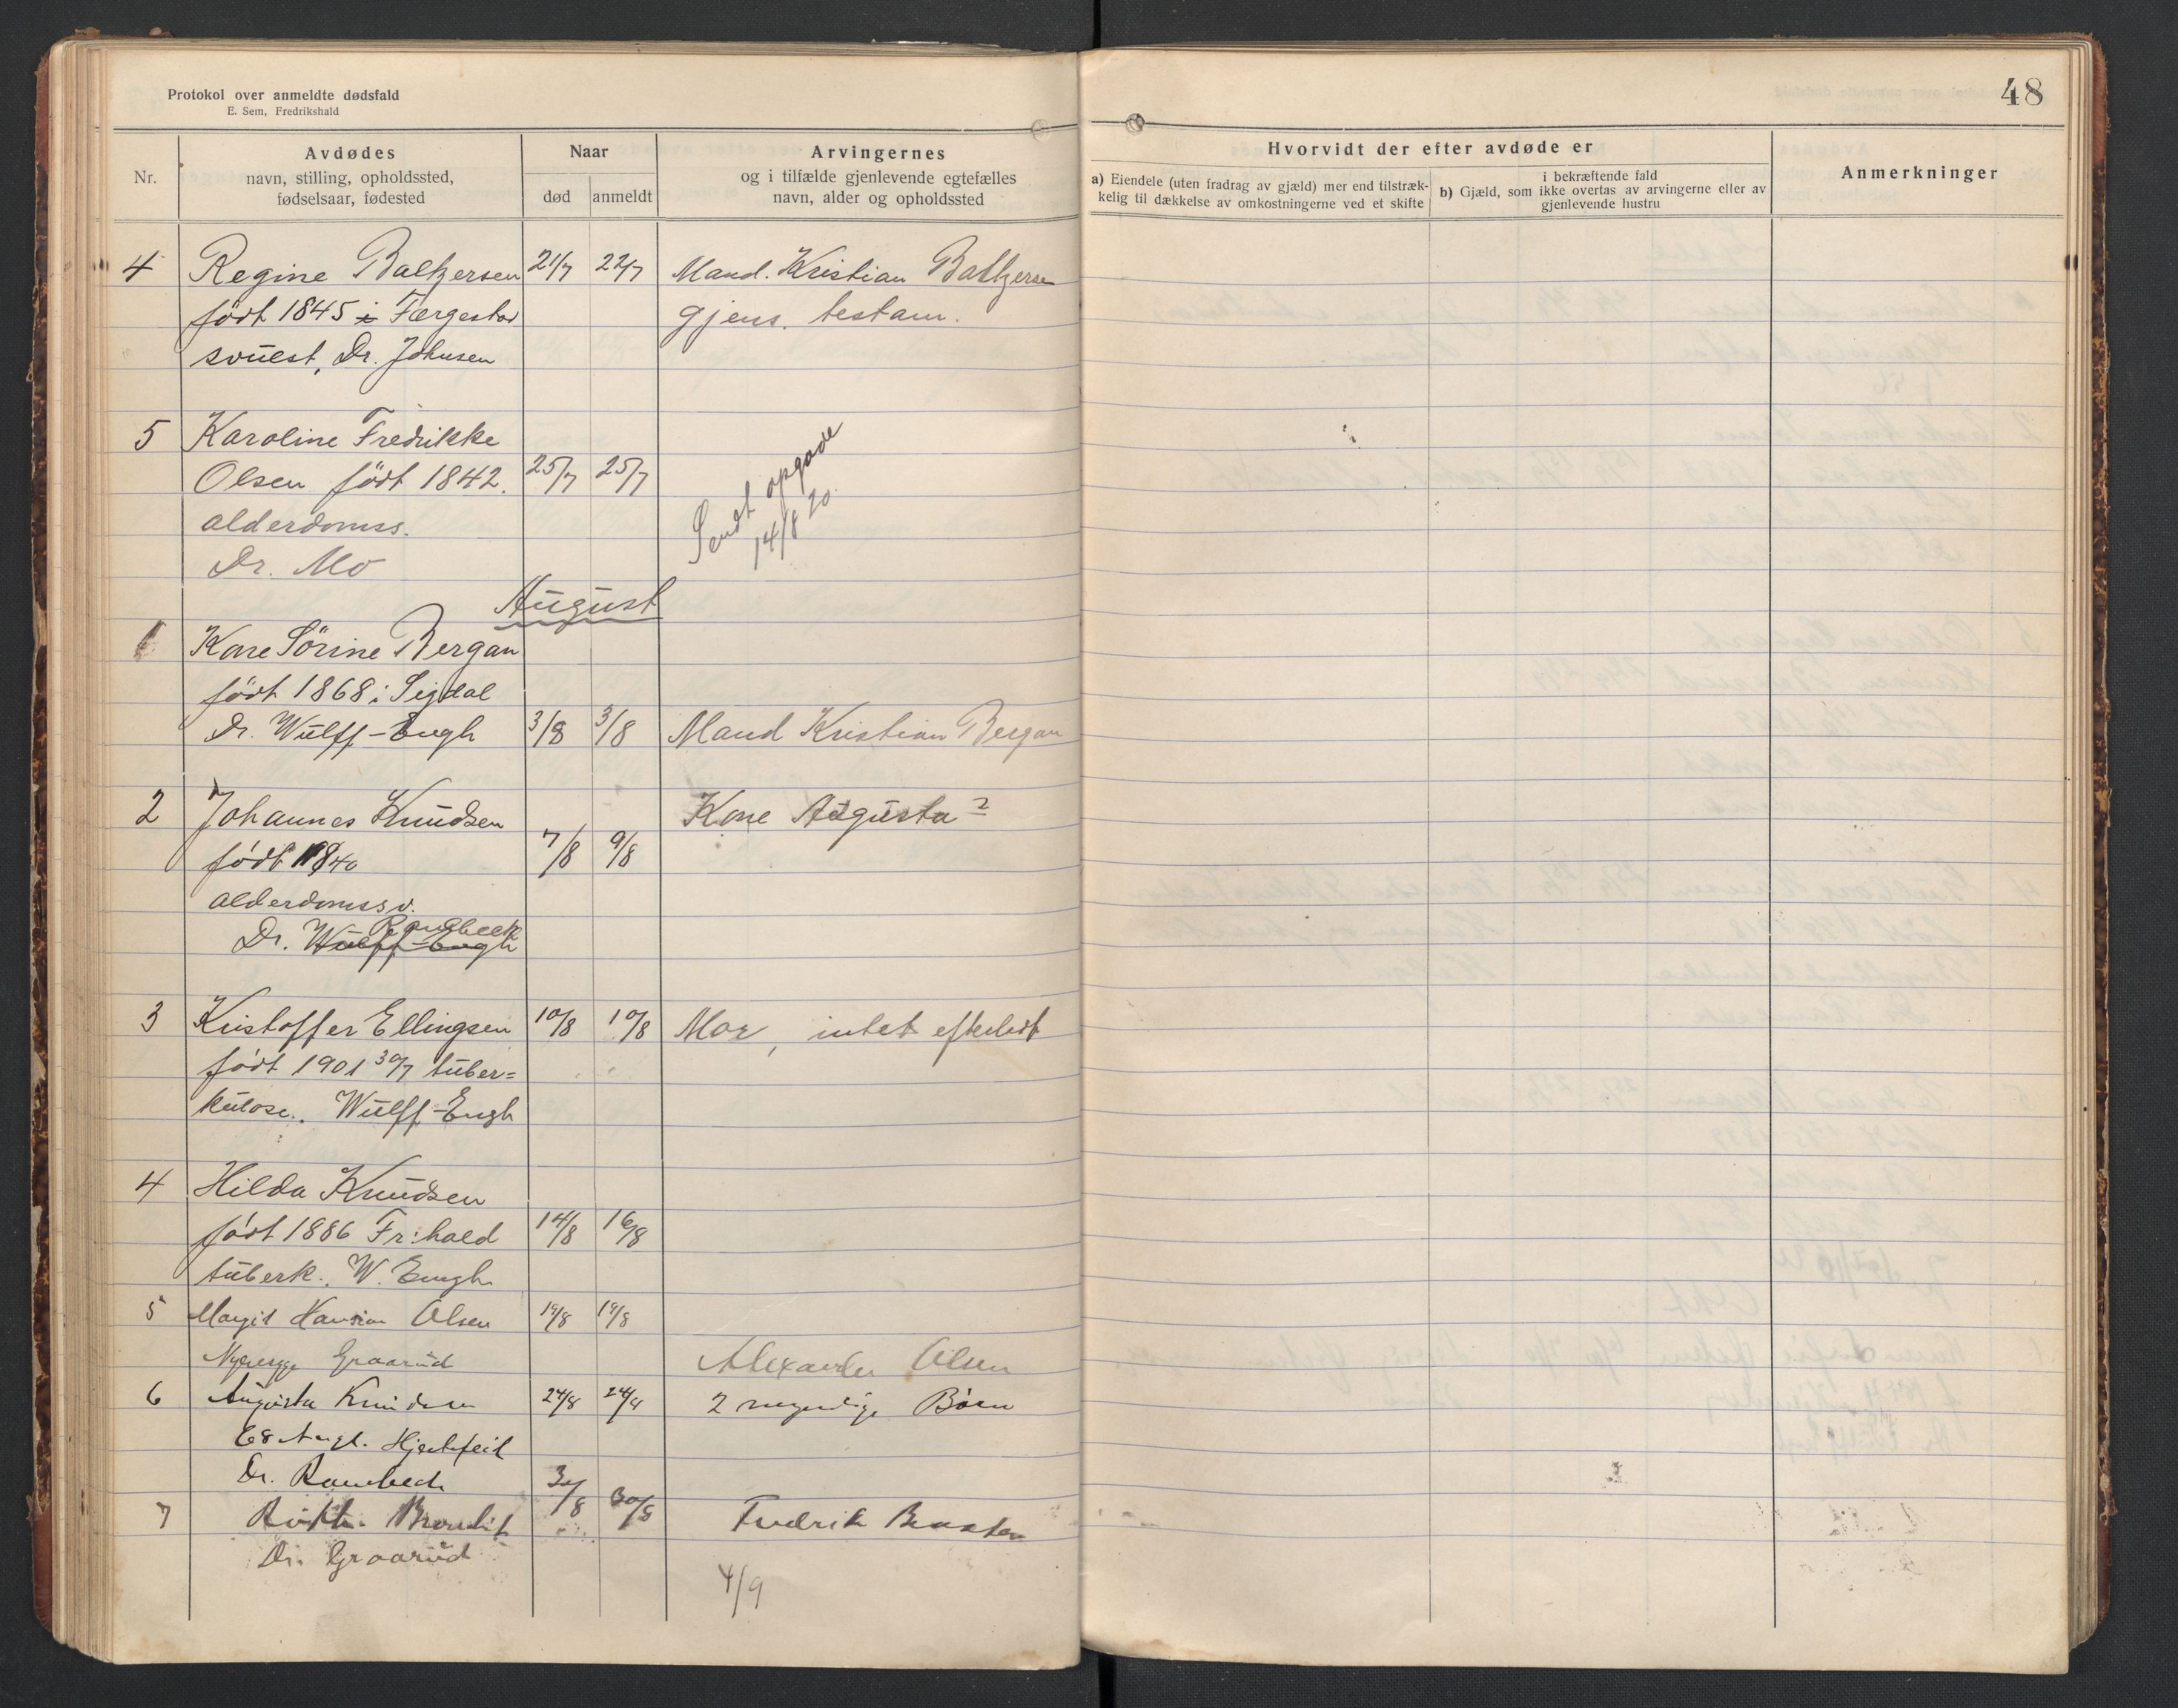 Protokol over anmeldte dødsfald
E. Sem, Fredrikshald
48
Nr.
Avdødes
navn, stilling, opholdssted,
fødselsaar, fødested
Naar
død
anmeldt
Arvingernes
og i tilfælde gjenlevende egtefælles
navn, alder og opholdssted
Hvorvidt der efter avdøde er
a) Eiendele (uten fradrag av gjæld) mer end tilstræk-
kelig til dækkelse av omkostningerne ved et skifte
i bekræftende fald
b) Gjæld, som ikke overtas av arvingerne eller av
gjenlevende hustru
Anmerkninger
4 Regine Baltzersen 21/7 22/7 Mand. Kristian Baltzersen
født 1845 i Færgestad gjens. testam.
Dr. Johnsen
5 Karoline Fredrikke
Olsen født 1842. 25/7 25/7
alderdomss.
Dr. Mo
Sendt opgave
14/8 20
August
1 Kone Sörine Bergan
födt 1868 i Sigdal
Dr. Wulff-Engh 3/8 3/8 Mand Kristian Bergan
2 Johannes Knudsen Kone Augusta ?
født 1840 7/8 9/8
alderdomssv.
Rambeck
Dr. Wulff-Engh
3 Kristoffer Ellingsen 10/8 10/8 Mor, intet efterladt
født 1901 30/7 tuber=
kulose. Wulff-Engh
4 Hilda Knudsen
født 1886 Fr:hald 14/8 16/8
tuberk. W. Engh
5 Margit Hansine Olsen 19/8 19/8
Graarud Alexander Olsen
6 Augusta Knudsen 24/8 24/8 2 Börn
68 Hjertefeil
Dr. Rambech
7 30/8 30/8 Fredrik
Dr. Graarud
4/9